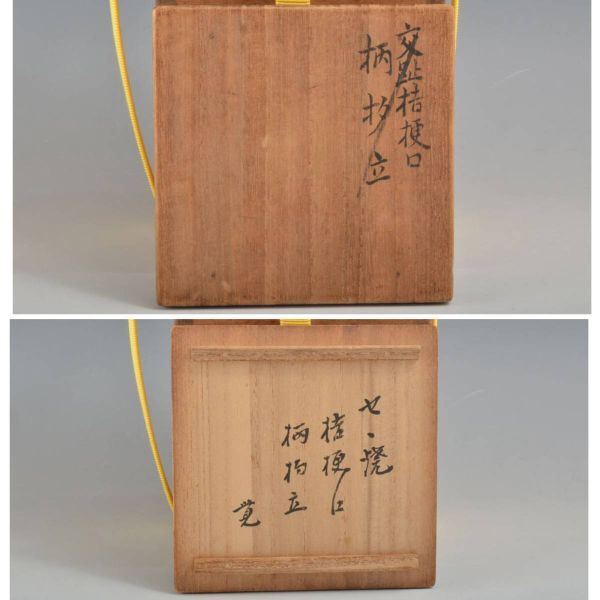 交趾桔梗口
柄杓立
せゝ焼
桔梗口
柄杓立
覚